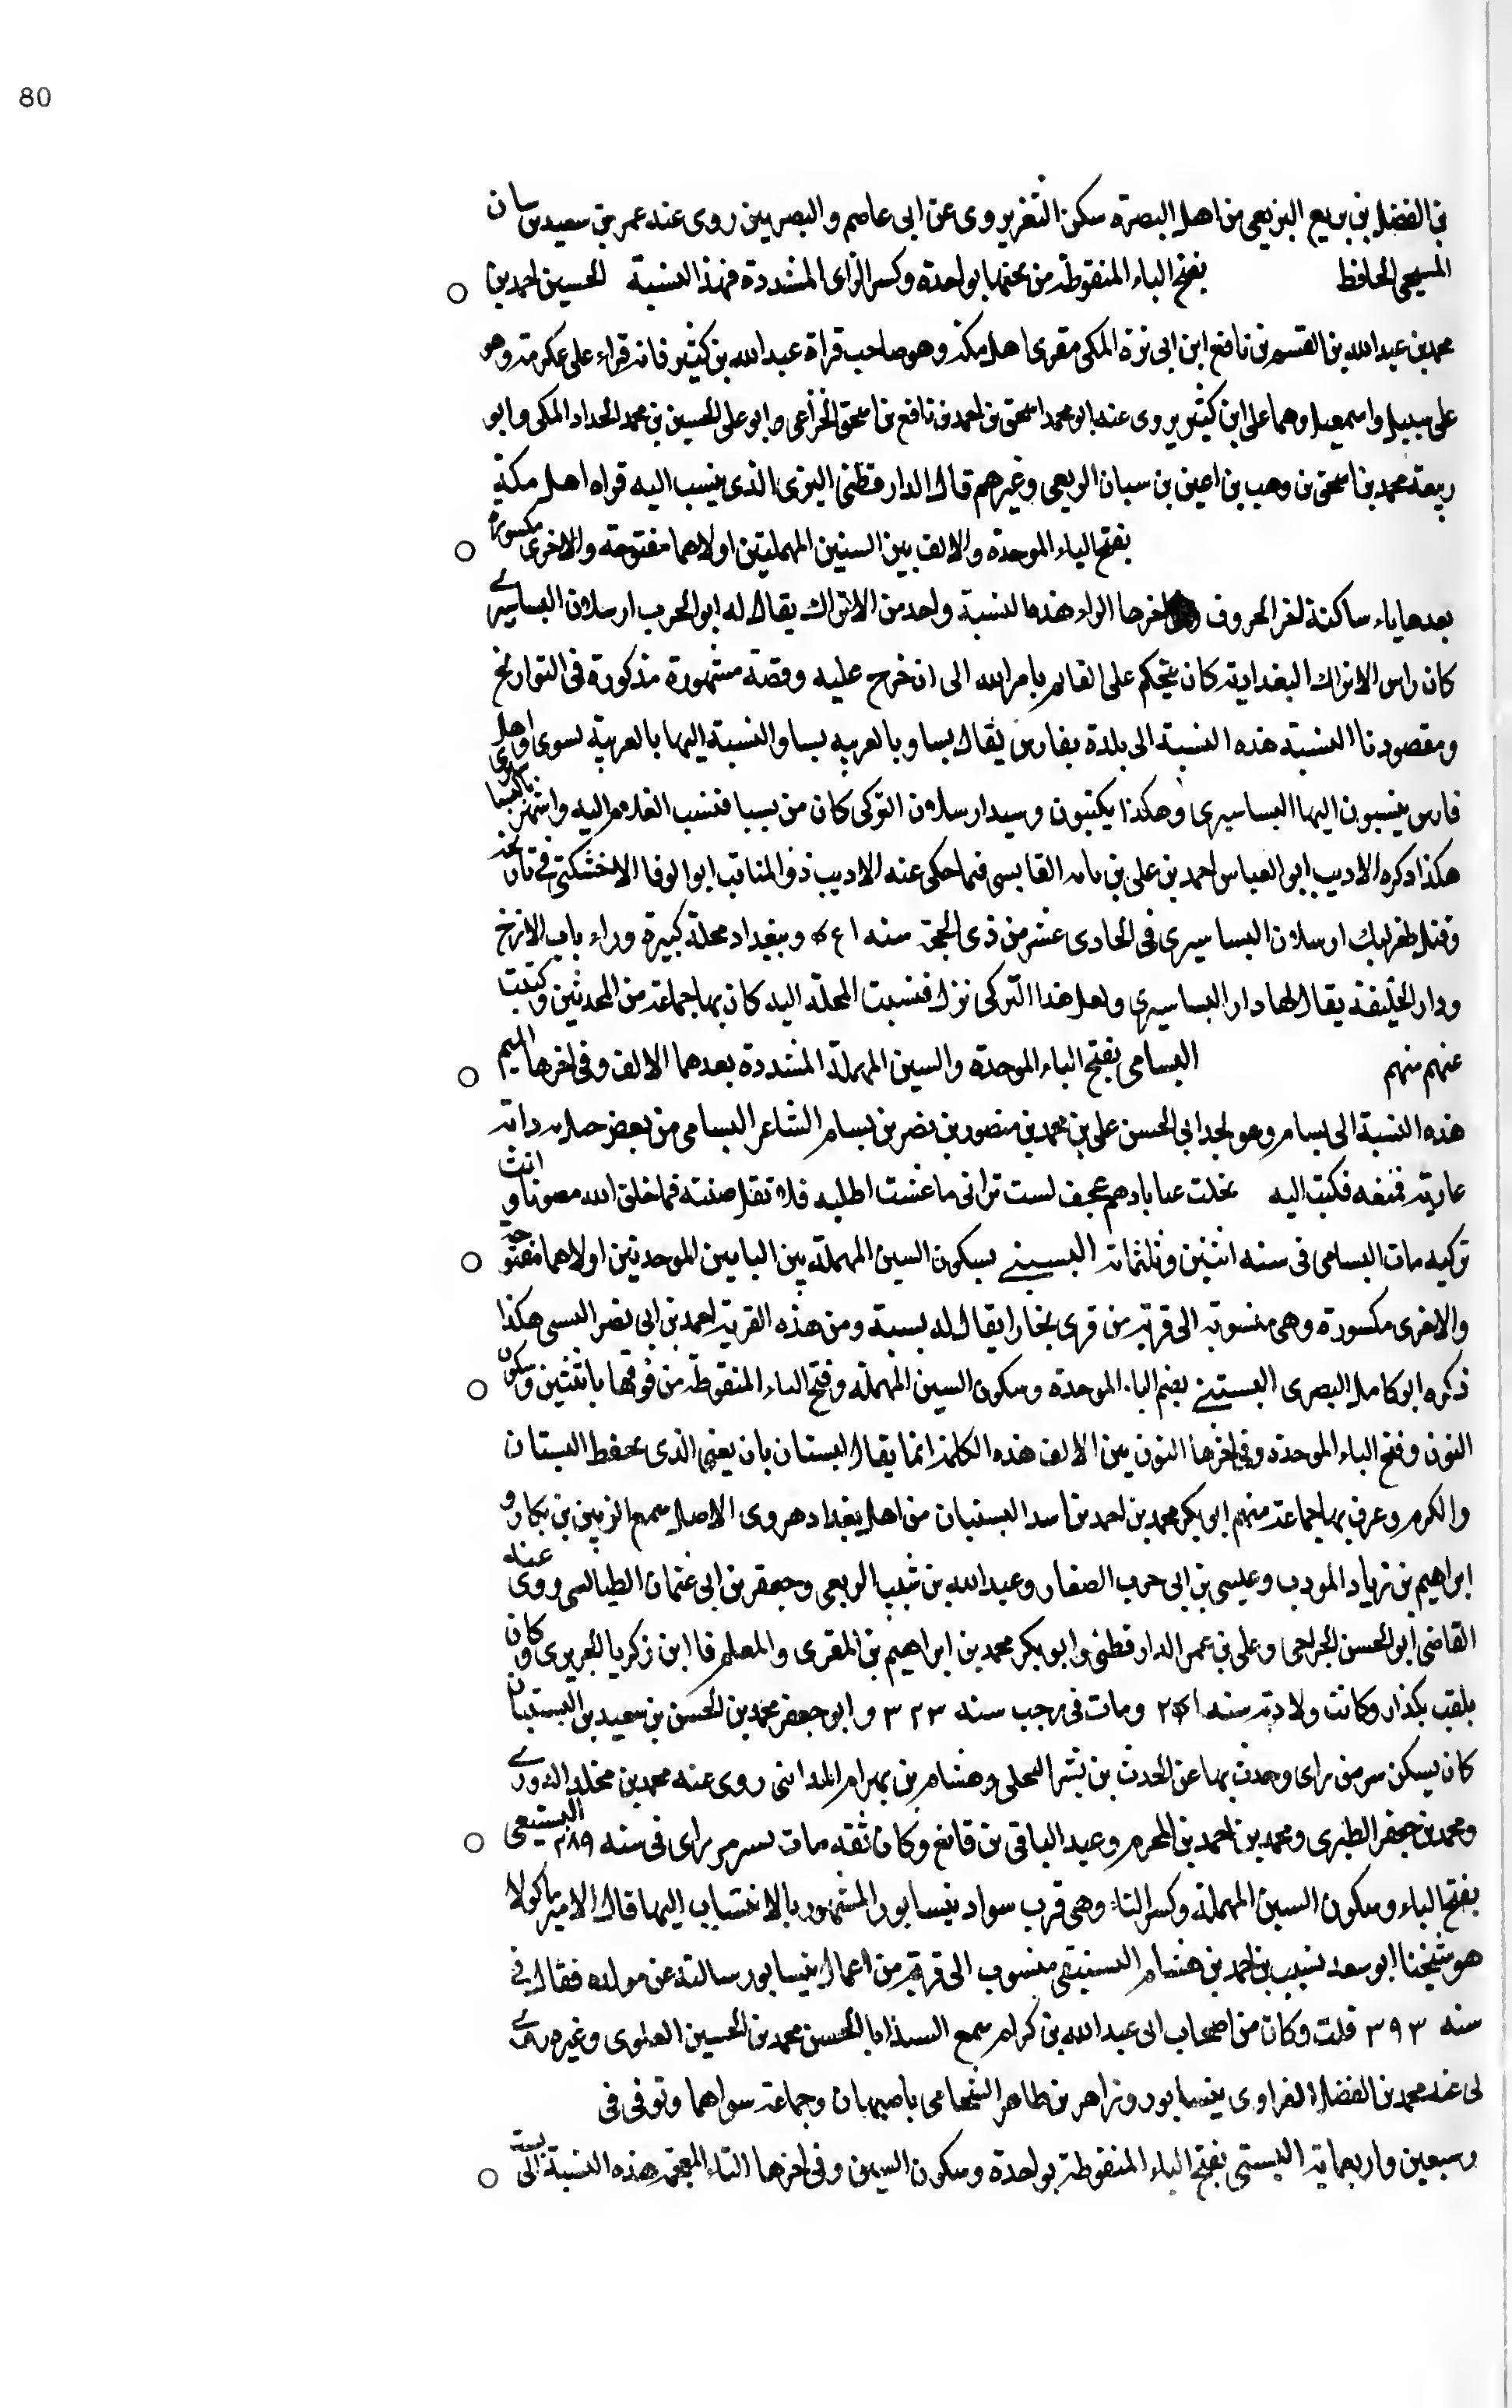 80
بن الفضل بن بزيع البزيعى من اهل البصرة سكن الثغر يروى عن ابى عاصم والبصريين روى عنه عمر بن سعيد بن سان
المسبحى الحافظ بفتح الباء المنقوطة من تحتها بواحدة وكسر الزاى المشددة فهذا النسبة الحسين احمد بن
محمد بن عبد الله بن القسم بن نافع ابن ابى بزة المكى مقرى اهل مكة وهو صاحب قراة عبد الله بن كثير فانه قراء على عكرمة وهو
على سبيل واسمعيل وهما على ابن كثير يروى عنه ابو محمد اسحق بن احمد بن نافع بن اسحق الخزاعى وابو على الحسين بن محمد الحداد المكى وابو
ربيعة محمد بن اسحق بن وهب بن اعين بن سبان الربعى وغيرهم قال الدارقطنى البزى الذى ينسب اليه قراه اهل مكة
بفتح الباء الموحدة والالف بين السنين المهملتين اولاهما مفتوحة والاخرى مكسورة
بعدها ياء ساكنة لغر الحروف اخرها الراء هذه النسبة ولحد من الاتراك يقال له ابو الحرب ارسلان البساسيرى
كان راس الاتراك البغدادية كان يتحكم على القائم بامر الله الى ان خرج عليه وقصة مشهورة مذكورة فى التواريخ
ومقصودنا النسبة هذه النسبة الى بلدة بفارس يقال بسا وبالعربيه بسا والنسبة اليها بالعربية لسوى واهل
فارس ينسبون اليها البساسيرى وهكذا يكتبون وسيد ارسلان التركى كان من بسا فنسب الغلام اليه واشتهر بالبساسيرى
هكذا ذكره الاديب ابو العباس احمد بن على بن بابه القابسى فما حكى عنه الاديب ذو المناقب ابو الوفا الاخشكتى فى تاريخه
وقتل طغرلبك ارسلان البساسيرى فى الحادى عشر من ذى الحجة سنه ٤٥١ وببغداد محلة كبيرة وراء باب الازج
ودار الخليفة يقال لها دار البساسيرى ولعل هذا التركى نزل فنسبت المحلة اليه كان بها جماعة من المحدثين وكتبت
عنهم منهم البسامى بفتح الباء الموحدة والسين المهملة المشددة بعدهما الالف وفى اخرها الميم
هذه النسبة الى بسام وهو لجد ابى الحسن على بن محمد بن منصور بن نصر بن بسام الشاعر البسامى من بعض دابة
عارية فمنعه فكتب اليه بخلت عنا بادهم عجف لست ترانى ما عشت اطلبه فلا تقل صنته فما خلق الله مصونا وانت
تركبه مات البسامى فى سنه اثنين وثلثمائة البسبى بسكون السين المهملة بين البايين الموحدتين اولاهما مفتوحة
والاخرى مكسورة وهى منسوبة الى قرية من قرى بخارا يقال له بسبة ومن هذه القرية احمد بن ابى نصر البسبى هكذا
ذكره ابو كامل البصرى البستنى بضم الباء الموحدة وسكون السين المهملة وفتح التاء المنقوطة من فوقها باثنتين وسكون
النون وفتح الباء الموحدة وفى اخرها النون بين الالف هذه الكلمة انما يقال البستان بان يعنى الذى يحفظ البستان
والكرم وعرف بها جماعة منهم ابو بكر محمد بن احمد بن اسد البستنبان من اهل بغداد هروى الاصل سمع الزبير بن بكار و
ابراهيم بن زياد المودب وعيسى بن ابى حرب الصفار وعبد الله بن شبيب الربعى وجعفر بن ابى عثمان الطيالسى وروى عنه
القاضى ابو الحسن الجراحى وعلى بن عمر الدارقطنى وابو بكر محمد بن ابراهيم بن المقرى والمعافا ابن زكريا الجريرى وكان
يلقب بكذا وكانت ولادته سنه ٢٤١ ومات فى رجب سنه ٣٢٣ وابو جعفر محمد بن الحسن بن سعيد بن البستنبان
كان يسكن سر من راى وحدث بها عن الحدث بن بشر البجلى وهشام بن بهرام المدائنى روى عنه محمد بن مخلد الدورى
ومحمد بن جعفر الطبرى ومحمد بن احمد بن المحرم وعبد الباقى بن قانع وكان ثقه مات بسر من راى فى سنه ٢٨٩ البستيغى
بفتح الباء وسكون السين المهملة وكسر التاء وهى قرب سواد نيسابور المشهور بالانتساب اليها قال الامير ماكولا
هو شيخنا ابو سعد شبيب بن احمد بن هشام البستيغى منسوب الى قرية من اعمال نيسابور سالته عن مولده فقال فى
سنه ٣٩٣ قلت وكان من اصحاب ابى عبد الله بن كرام سمع السيد ابا الحسن محمد بن الحسين العلوى وغيره روى
لى عنه محمد بن الفضل الفراوى بنيسابور وزاهر بن طاهر الشحامى باصبهان وجماعة سواهما وتوفى فى
وسبعين واربعماية البستى بفتح الباء المنقوطة بواحدة وسكون السين وفى اخرها التاء المعجمة هذه النسبة الى بست